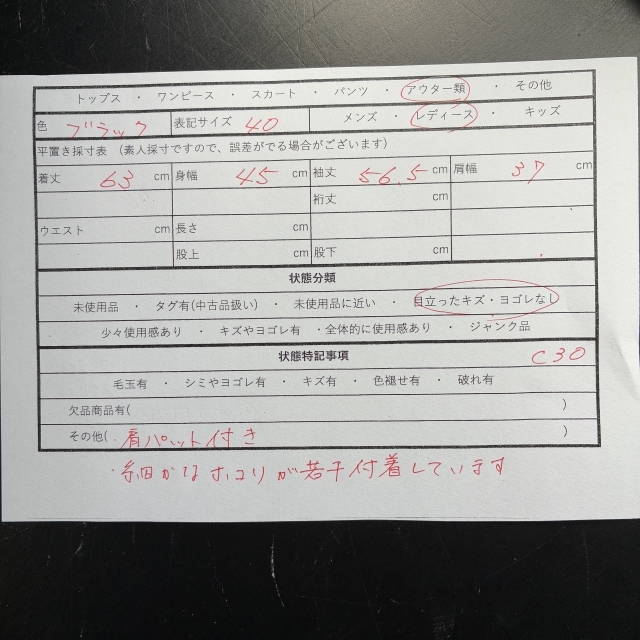 トップス ・ ワンピース ・ スカート ・ パンツ ・ アウター類 ・ その他
色 ブラック 表記サイズ 40 メンズ ・ レディース ・ キッズ
平置き採寸表 (素人採寸ですので、誤差がでる場合がございます)
着丈 63 cm 身幅 45 cm 袖丈 56.5 cm 肩幅 37 cm
裄丈 cm
ウエスト cm 長さ cm
股上 cm 股下 cm
状態分類
未使用品 ・ タグ有(中古品扱い) ・ 未使用品に近い ・ 目立ったキズ・ヨゴレなし
少々使用感あり ・ キズやヨゴレ有 ・全体的に使用感あり ・ ジャンク品
状態特記事項 C30
毛玉有 ・ シミやヨゴレ有 ・ キズ有 ・ 色褪せ有 ・ 破れ有
欠品商品有( )
その他( 肩パット付き )
・細かなホコリが若干付着しています